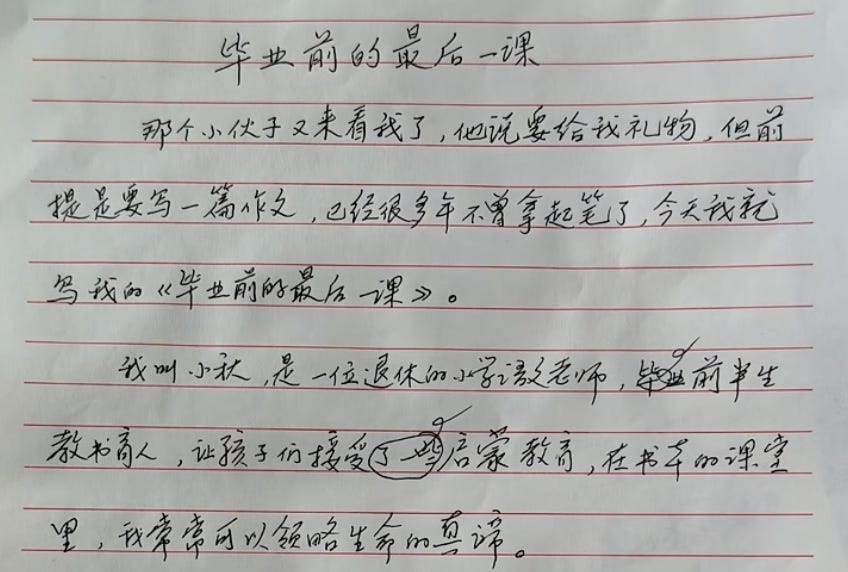 毕业前的最后一课
那个小伙子又来看我了，他说要给我礼物，但前
提是要写一篇作文，已经很多年不曾拿起笔了，今天我就
写我的《毕业前的最后一课》。
我叫小秋，是一位退休的小学语文老师，前半生
教书育人，让孩子们接受启蒙教育，在书本的课堂
里，我常常可以领略生命的真谛。